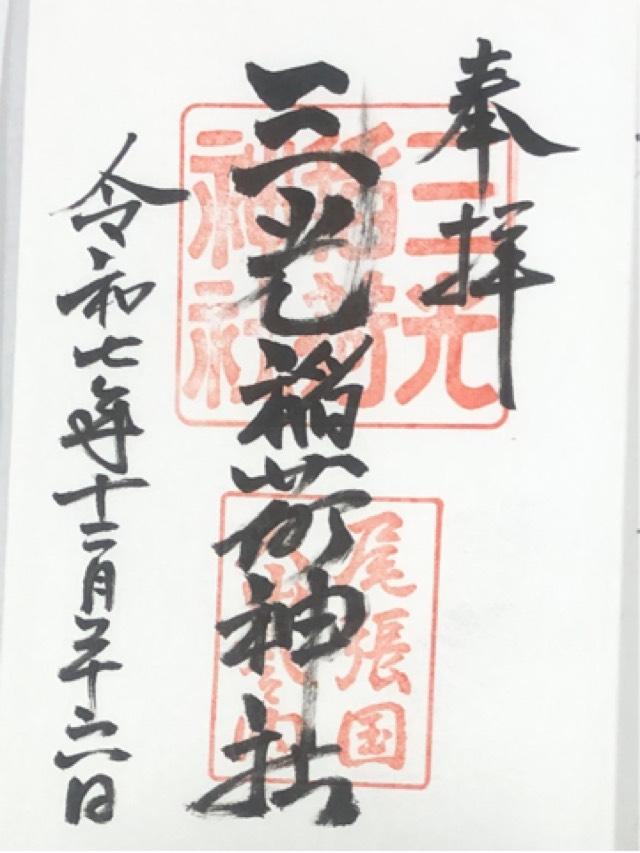 奉拝
三光稲荷神社
令和七年十二月二十六日
三光
稲荷
神社
尾張国